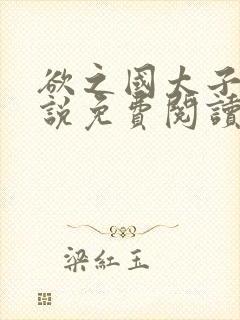 欲之國大子
說免費閱讀
梁紅玉